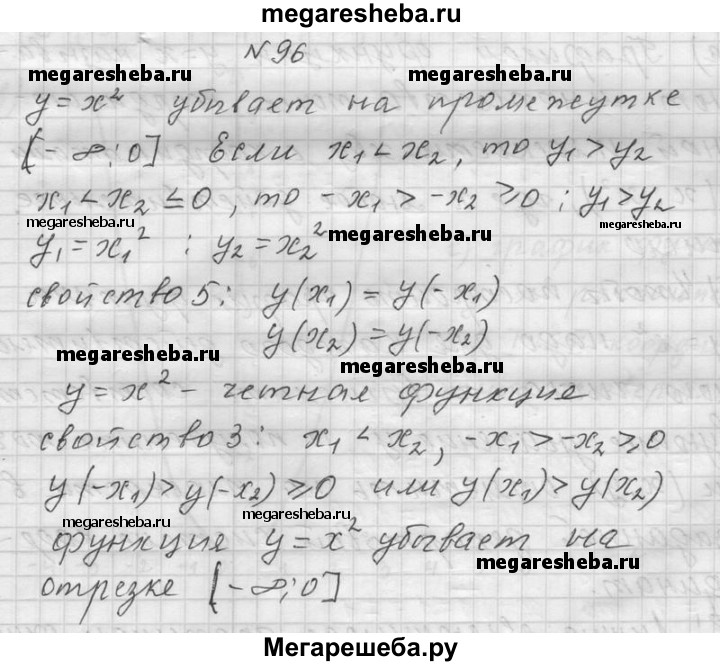 megaresheba.ru
N 96
megaresheba.ru megaresheba.ru
y = x² убывает на промежутке
[-∞;0] Если x₁ < x₂, то y₁ > y₂
x₁ < x₂ ≤ 0, то -x₁ > -x₂ ≥ 0; y₁ > y₂
megaresheba.ru megaresheba.ru
y₁ = x₁² ; y₂ = x₂²
свойство 5: y(x₁) = y(-x₁)
y(x₂) = y(-x₂)
megaresheba.ru megaresheba.ru
y = x² - четная функция
свойство 3: x₁ < x₂, -x₁ > -x₂ ≥ 0
y(-x₁) > y(-x₂) ≥ 0 или y(x₁) > y(x₂)
megaresheba.ru
функция y = x² убывает на
megaresheba.ru
отрезке [-∞;0]
Мегарешеба.ру